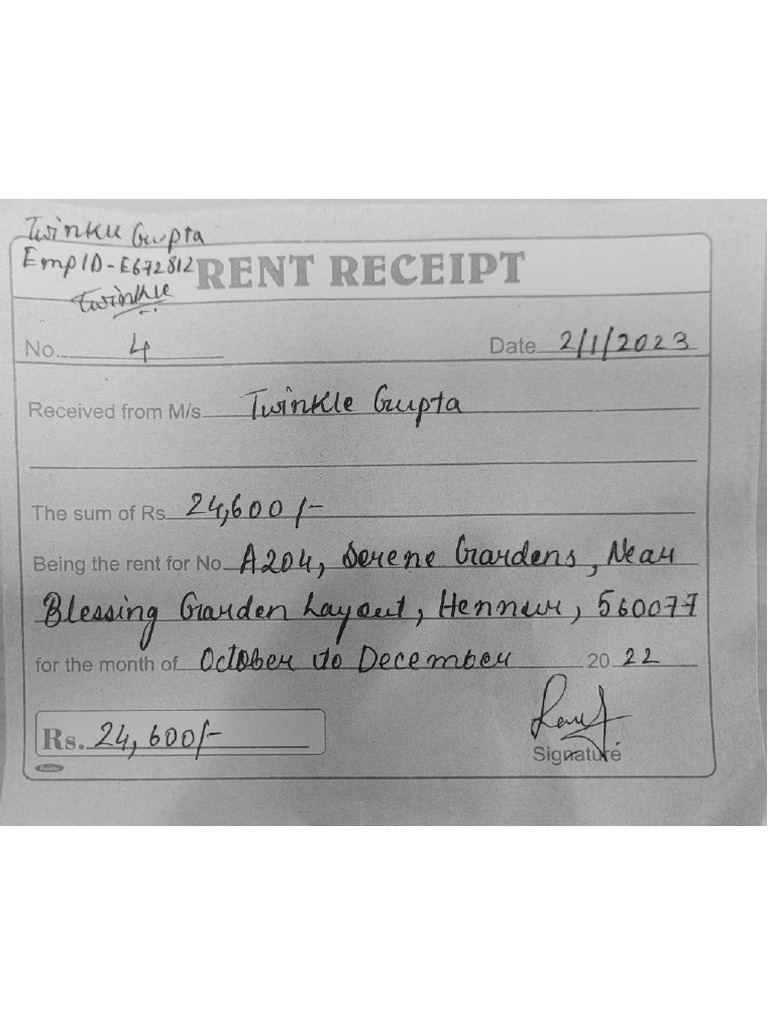 Twinkle Gupta
Emp ID - E672812
RENT RECEIPT
Twinkle
No. 4 Date 2/1/2023
Received from M/s Twinkle Gupta
The sum of Rs. 24,600/-
Being the rent for No. A204, Serene Gardens, Near
Blessing Garden Layout, Hennur, 560077
for the month of October to December 20 22
Rs. 24,600/-
Signature